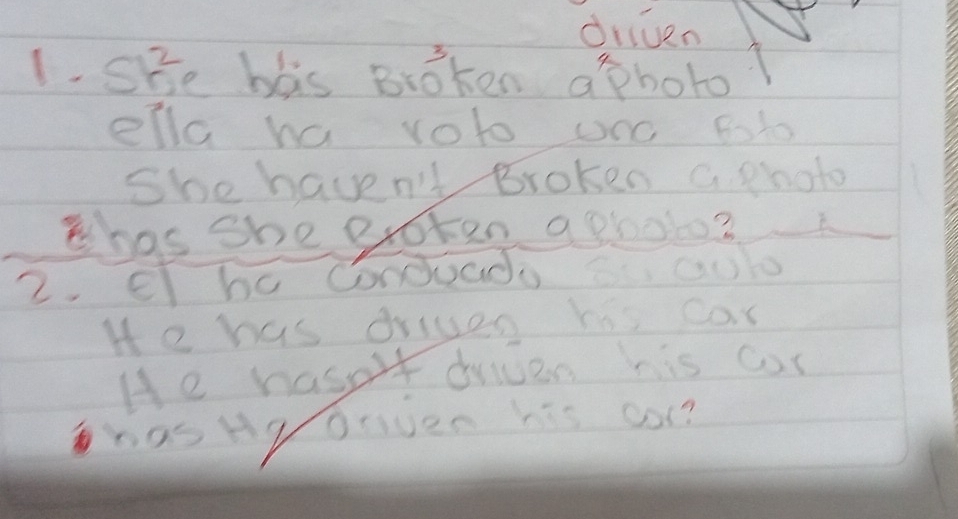 driven
1. She has Broken a Photo
ella ha roto una foto
She haven't Broken a Photo
has She Broken a Photo?
2. El ha Conduado su auto
He has driven his car
He hasn't driven his Car
has He driven his car?